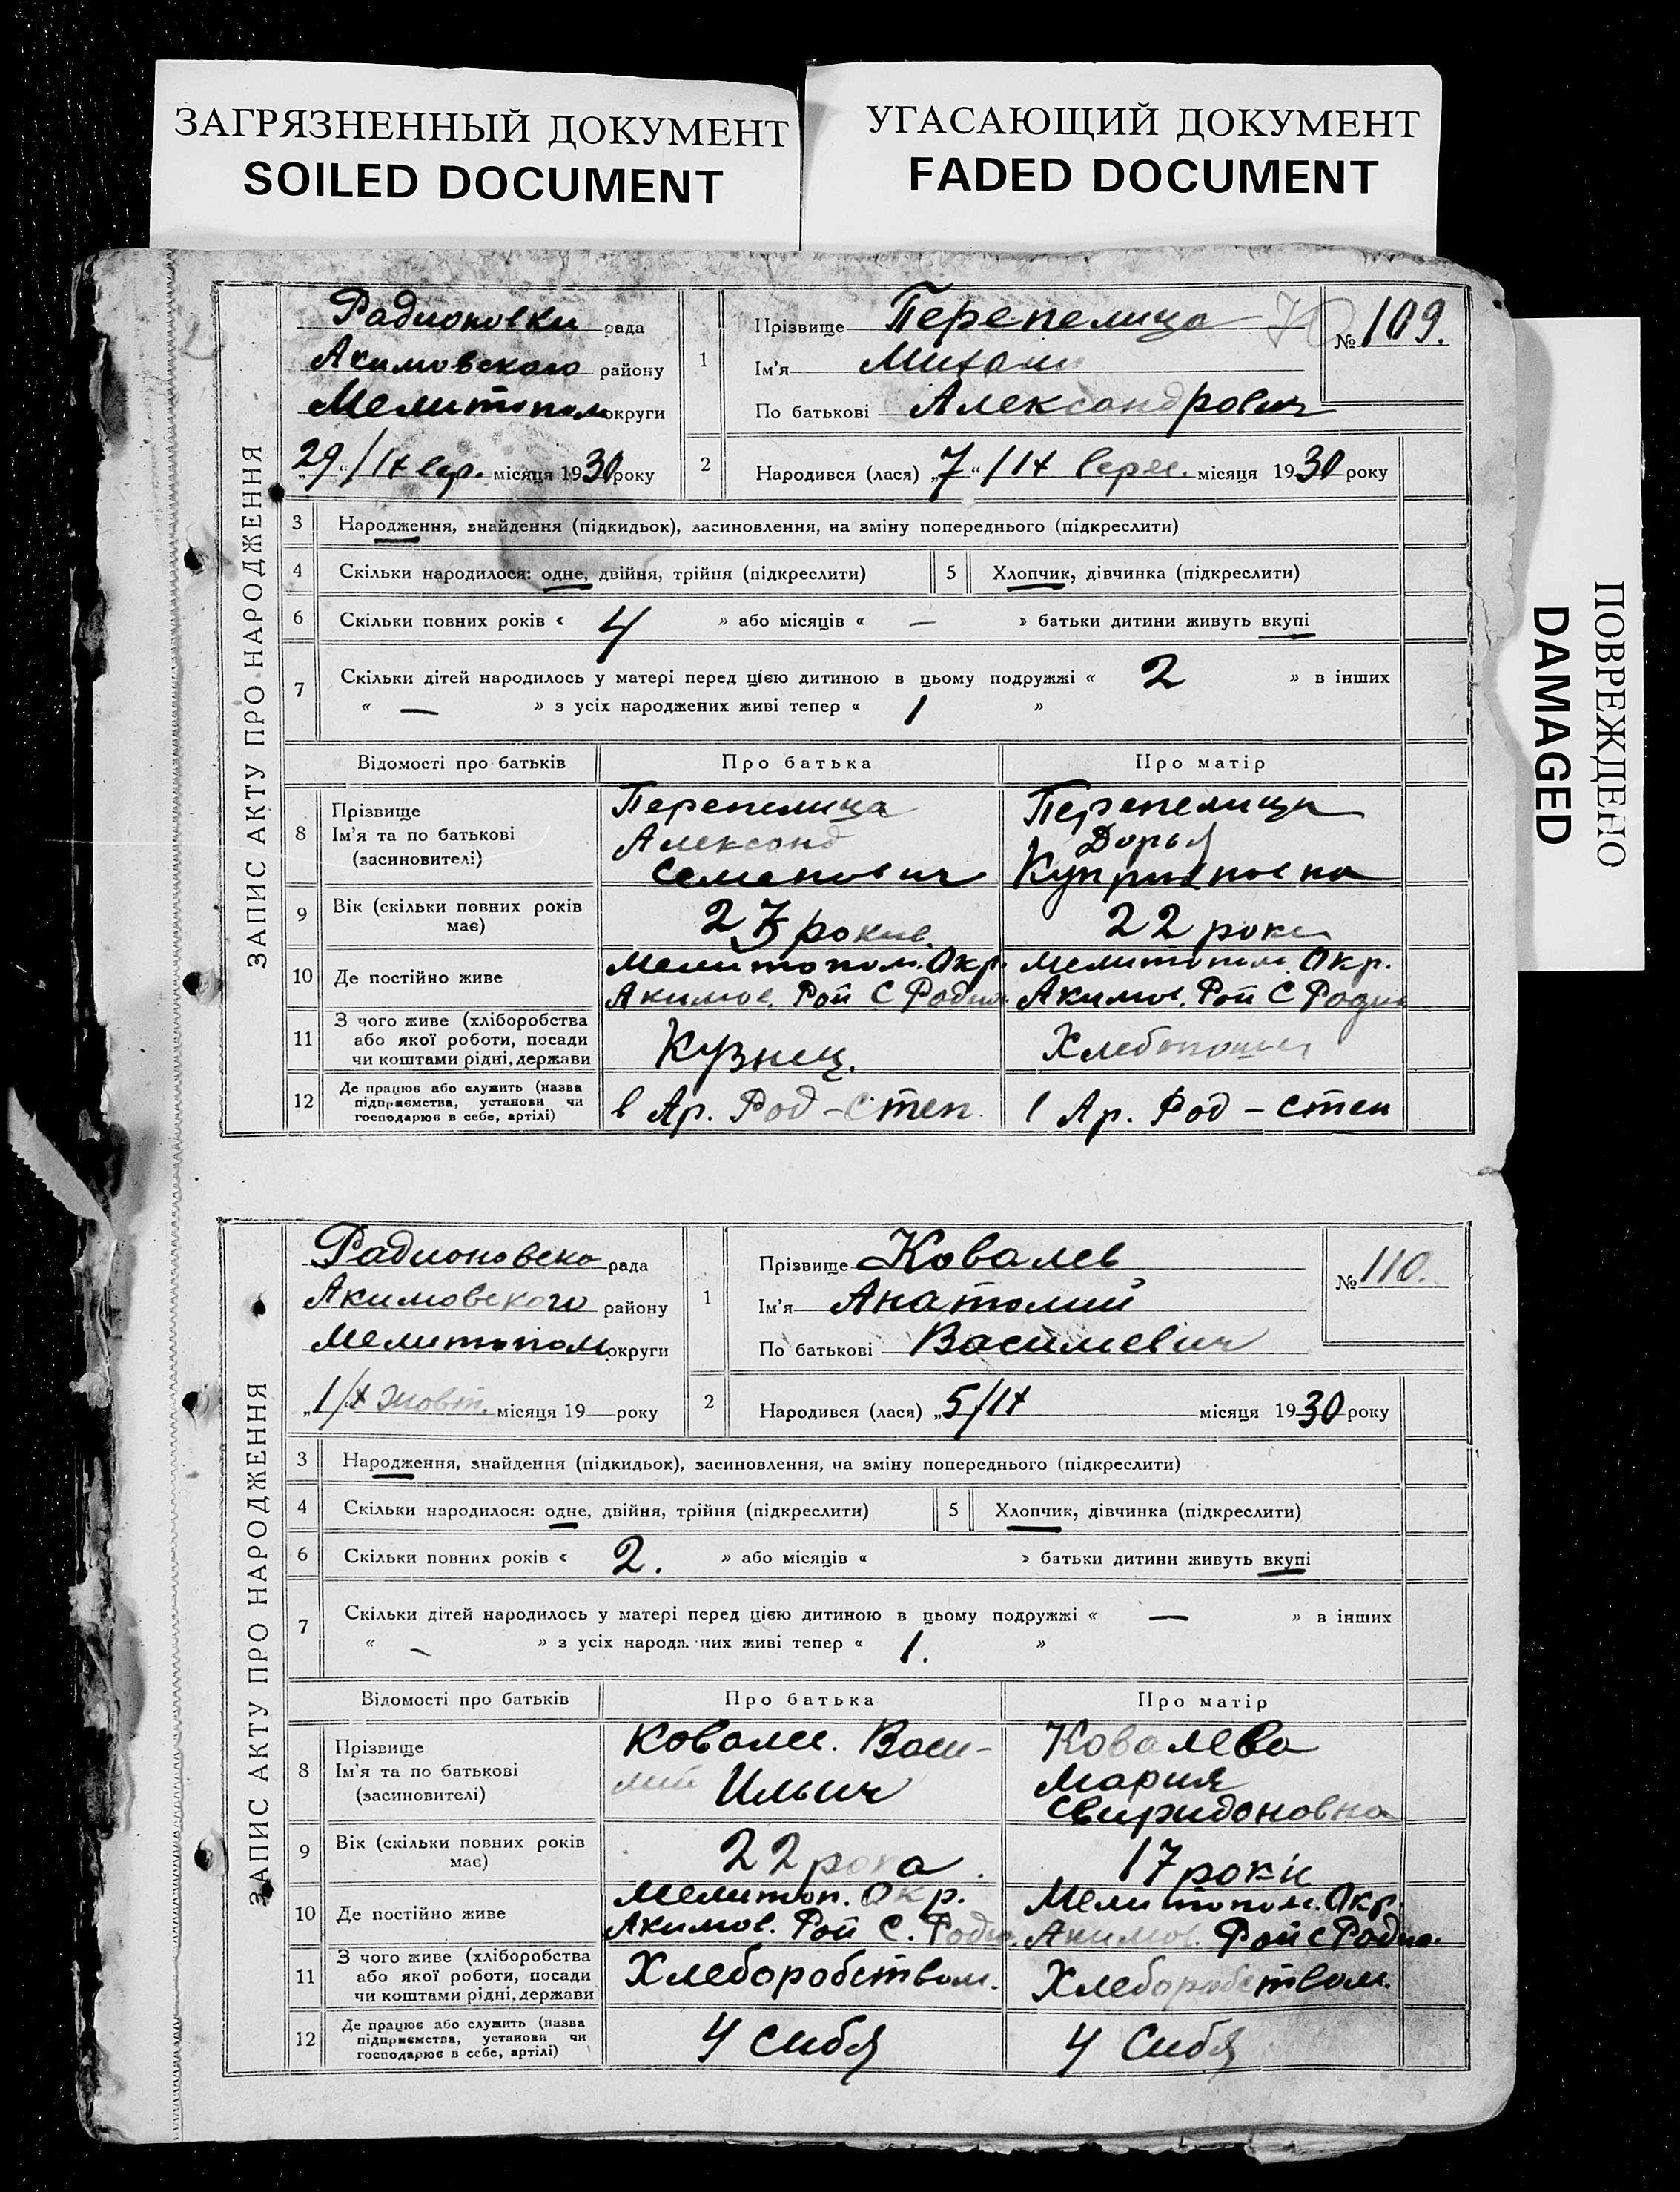 ЗАГРЯЗНЕННЫЙ ДОКУМЕНТ
SOILED DOCUMENT
УГАСАЮЩИЙ ДОКУМЕНТ
FADED DOCUMENT
ПОВРЕЖДЕНО
DAMAGED
ЗАПИС АКТУ ПРО НАРОДЖЕННЯ
Радионовки рада
Акимовского району
Мелитопол округи
„29“/IX вер. місяця 1930 року
1 Прізвище Перепелица
Ім'я Михаил
По батькові Александрович
№ 109.
2 Народився (лася) „7“/IX верес. місяця 1930 року
3 Народження, знайдення (підкидьок), засиновлення, на зміну попереднього (підкреслити)
4 Скільки народилося: одне, двійня, трійня (підкреслити) 5 Хлопчик, дівчинка (підкреслити)
6 Скільки повних років « 4 » або місяців « — » батьки дитини живуть вкупі
7 Скільки дітей народилось у матері перед цією дитиною в цьому подружжі « 2 » в інших
« — » з усіх народжених живі тепер « 1 »
Відомості про батьків Про батька Про матір
8 Прізвище
Ім'я та по батькові
(засиновителі)
Перепелица
Александ
Семенович
Перепелица
Дарья
9 Вік (скільки повних років
має)
22 роки
10 Де постійно живе
Мелитопол. Окр.
Акимов. Рой С Родио.
Мелитопол. Окр.
Акимов. Рой С Родио
11 З чого живе (хліборобства
або якої роботи, посади
чи коштами рідні, держави
Кузнец.
12 Де працює або служить (назва
підприємства, установи чи
господарює в себе, артілі)
в Ар. Род-Степ.
в Ар. Род-степ
ЗАПИС АКТУ ПРО НАРОДЖЕННЯ
Радионовско рада
Акимовского району
Мелитопол округи
„1/X жовт. місяця 19 року
1 Прізвище Ковалев
Ім'я Анатолий
По батькові Василевич
№ 110.
2 Народився (лася) „5/IX місяця 1930 року
3 Народження, знайдення (підкидьок), засиновлення, на зміну попереднього (підкреслити)
4 Скільки народилося: одне, двійня, трійня (підкреслити) 5 Хлопчик, дівчинка (підкреслити)
6 Скільки повних років « 2. » або місяців « » батьки дитини живуть вкупі
7 Скільки дітей народилось у матері перед цією дитиною в цьому подружжі « — » в інших
« - » з усіх народж них живі тепер « 1. »
Відомості про батьків Про батька Про матір
8 Прізвище
Ім'я та по батькові
(засиновителі)
Ковалев. Васи-
лий Ильич
Ковалева
Мария
Свиридоновна
9 Вік (скільки повних років
має)
22 рока
17 рокiв
10 Де постійно живе
Мелитоп. Окр.
Акимов. Рой С. Родио.
Мелитопол. Окр.
Акимов. Рой с Родио.
11 З чого живе (хліборобства
або якої роботи, посади
чи коштами рідні, держави
Хлеборобством.
Хлеборобством.
12 Де працює або служить (назва
підприємства, установи чи
господарює в себе, артілі)
У Сибя
У Сибя